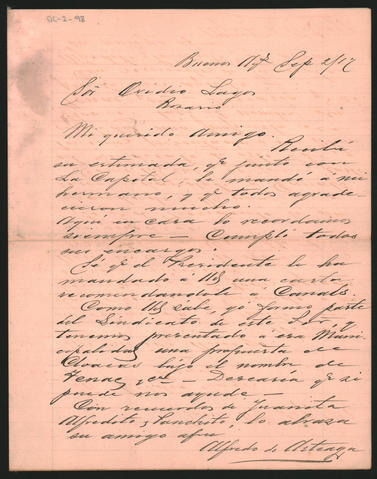 OL-2-98
Buenos Ays Sep 2/17
Sor Ovidio Lagos
Rosario
Mi querido Amigo. Recibí
su estimada, qe junto con
La Capital, le mandó á mi
hermano, y qe todos agrade-
cieron mucho.
Aquí en casa lo recordamos
siempre — Cumplí todos
sus encargos.
Sé qe el Presidente le ha
mandado á Ud una carta
recomendandole Canals.
Como Ud sabe, yo formo parte
del Sindicato de este Sor y
tenemos presentado a esa Muni-
cipalidad una propuesta de
Cloacas bajo el nombre de
— Desearia qe si
puede nos ayude —
Con recuerdos de Juanita
Alfredito y Panchito, lo abraza
su amigo afmo
Alfredo de Arteaga